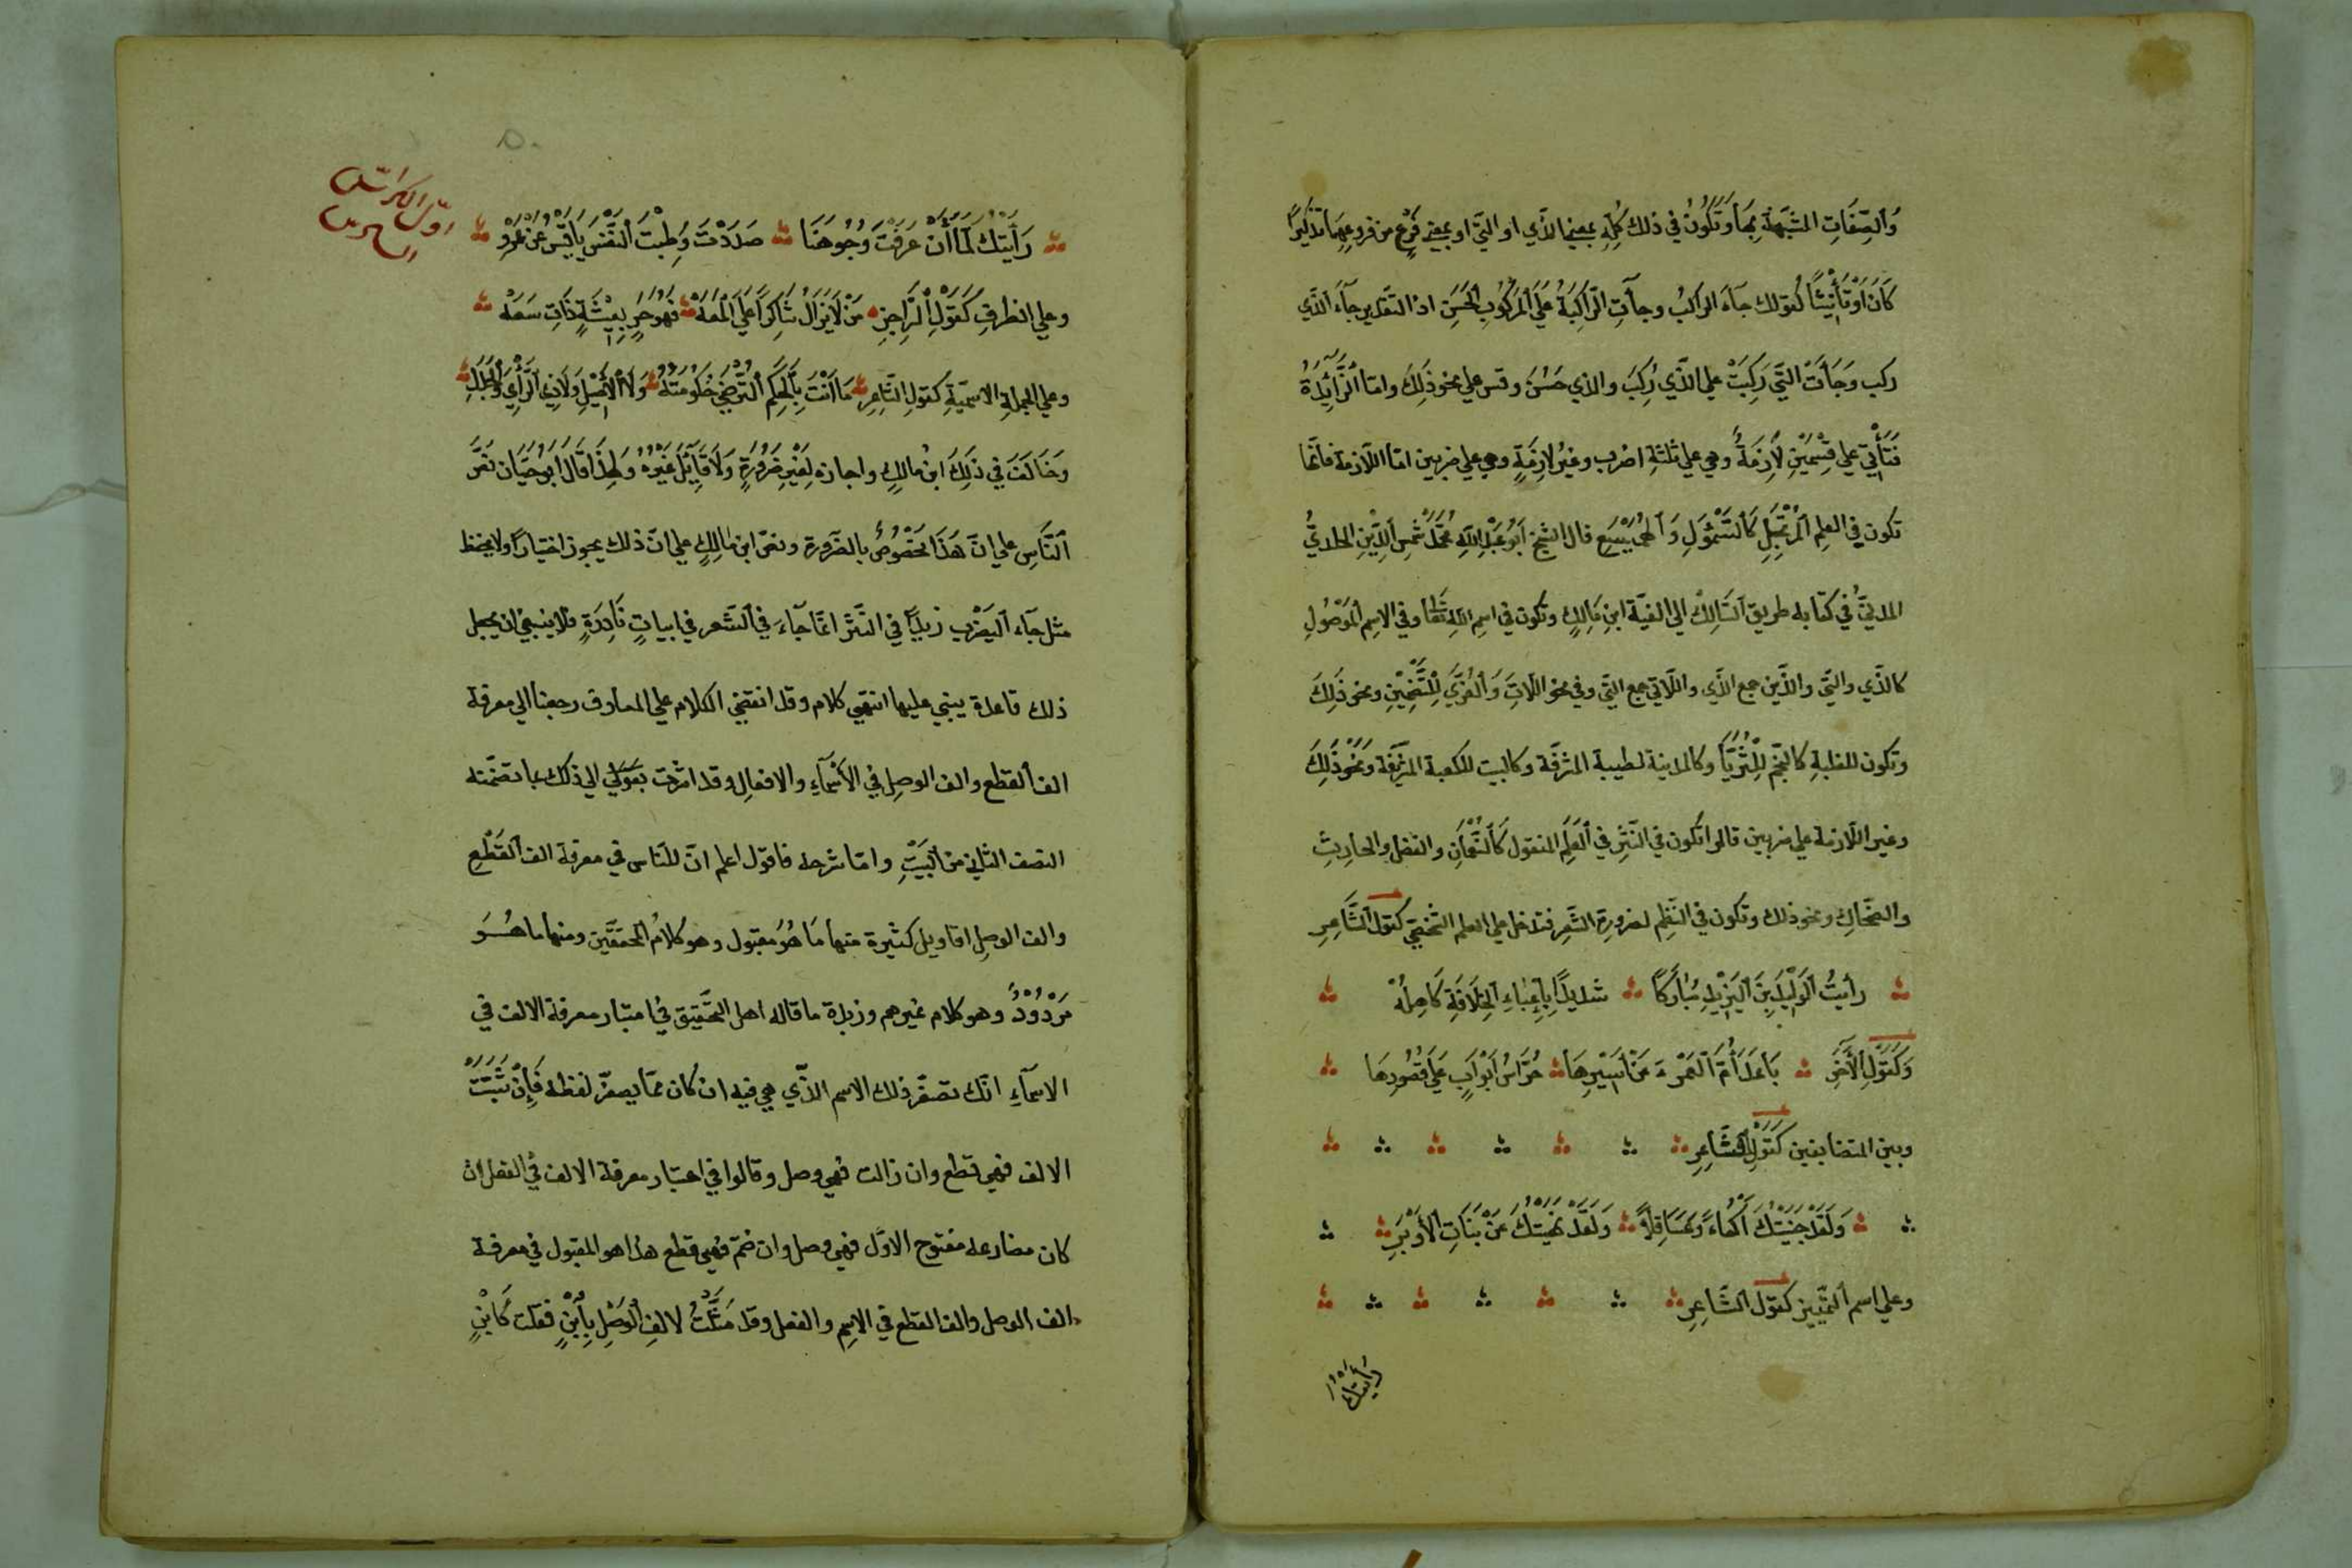 وَالصِّفَاتِ المشَبَّهَةِ بِهَا وَتَكُونُ في ذلك كُلِّهِ بمعنى الذي او التي او بمعنى فَرْعٍ من فروعِهِمَا تذكيرًا
كَانَ اَوْ تَأْنِيثًا كقولك جآءَ الراكبُ وجآءتِ الرّاكِبَةُ عَلَى المَرْكُوبِ الحَسَنِ اذ التقدير جآءَ الَّذي
ركب وَجَآءَتْ التي رَكِبَتْ على الّذي رُكِبَ والذي حَسُنَ وقس على نحو ذَلِكَ وامّا الزَّآئِدَةُ
فَتَأْتِي على قِسْمَيْنِ لَازِمَةٌ وهي على ثلثةِ اضرب وغيرُ لازِمَةٍ وهي على ضربين امّا اللّازمة فانّها
تكون في العلم المُرْتَجَلِ كَالسَّمَوْأَلِ وَ الْيَسَعِ قال الشيخ اَبُو عَبْدِ اللّهِ مُحَمَّدُ شَمْسِ الدِّينِ
المدنيُّ في كتابه طريق السَّالِك الى الفيّة ابنِ مَالِكٍ وتكون في اسمِ اللّهِ تَعَالى وفي الاسِمِ المَوْصُولِ
كالذي والتي والذين جمع الذي واللّاتي جمع التي وفي نحو اللّاتَ وَالعُزَّى لِلصَّنَمَيْنِ ونحو ذَلِكَ
وتكون للغلبةِ كالنّجْمِ لِلثُّرَيَّا وكالمدينة لطيبة المشرّفَة وكالبيت للكعبة المشرّفَة وَنَحْوِ ذَلِكَ
وغير اللّازمة على ضربين قالوا تكون في النّثرِ في العَلَمِ المنقول كَالنُّعْمَانِ والفضلِ والحارِثِ
والضّحّاكِ ونحو ذلك وتكون في النّظمِ لضرورةِ الشّعرِ فتدخل على العلم الشّخصي كقول الشَّاعِرِ
رأيتُ الوَلِيدَ بنَ اليَزِيدِ مُبَارَكًا شديدًا بِاَعْبَاءِ الخِلَافَةِ كَاهِلُهْ
وَكَقَوْلِ الآخَرِ بَاعَدَ أُمَّ العَمْرِو عَنْ اَسِيرِهَا حُرَّاسُ اَبْوَابٍ عَلَى قُصُورِهَا
وبين المتضايفين كَقَوْلِ الشَّاعِرِ
وَلَقَدْ جَنَيْتُكَ اَكْمُؤًا وَعَسَاقِلًا وَلَقَدْ نَهَيْتُكَ عَنْ بَنَاتِ الأَوْبَرِ
وعلى اسم التمييز كقول الشَّاعِرِ
رأيتك
اوّل الكرّاس
رَأَيْتُكَ لَمَّا أَنْ عَرَفْتَ وُجُوهَنَا صَدَدْتَ وَطِبْتَ النَّفْسَ يَا قَيْسُ عَنْ عَمْرِو
وعلى الظرفِ كَقَوْلِ الرَّاجِزِ مَنْ لَا يَزَالُ شَاكِرًا عَلَى المَعَهْ فَهُوَ حَرٍ بِعِيشَةٍ ذَاتِ سَعَهْ
وعلى الجملةِ الاسميّةِ كقول الشَّاعِرِ مَا اَنْتَ بِالحَكَمِ التُّرْضَى حُكُومَتُهُ وَلَا الأَصِيلِ وَلَا ذِي الرَّأْيِ وَالجَدَلِ
وَخَالَفَ في ذَلِكَ ابن مالِكٍ واجازه لِغَيْرِ ضَرُورَةٍ وَلَا قَآئِلَ غَيْرُهُ وَلِهَذَا قَالَ اَبُو حَيَّان نصَّ
النَّاسِ على انّ هَذَا مخصُوصٌ بالضّرورة ونصّ ابن مالِكٍ على انّ ذلك يجوز اختيارًا ولا يحفظ
مثل جآء اليَضْرِب زيدًا في النّثر انّما جآءَ في الشّعر في ابياتٍ نَادِرَةٍ فلا ينبغي ان يجعل
ذلك قاعدة يبني عليها انتهى كلام وقد انقضى الكلام على المعارف رجعنا الى معرفة
الف القطع والف الوصلِ في الأَسْمَآءِ والافعالِ وقد اشرت بقولي الى ذلك بما تضمّنه
النصف الثاني من البَيْتِ وامّا شرحه فاقول اعلم انّ للنّاس في معرفة الف القَطْعِ
والف الوصلِ اقاويل كثيرة منها مَا هُوَ مقبول وهو كلامُ المحقّقين ومنها ما هُوَ
مَرْدُودٌ وهو كلام غيرهم وزبدة ما قاله اهل التّحقيق في اعتبار معرفة الالف في
الاسمآءِ انّك تصغّر ذلك الاسم الذّي هي فيه ان كان ممّا يصغّر لفظه فَإِنْ ثَبَتَتْ
الالف فهي قطع وان زالت فهي وصل وقالوا في اعتبار معرفة الالف في الفعل ان
كان مضارعه مفتوح الاوّل فهي وصل وان ضمّ فهي قطع هذا هو المقبول في معرفة
الف الوصل والف القطع في الاسِمِ والفعل وقد مَثَّلْتُ لالفِ الوَصْلِ بِاَبْنٍ فقلت كَابْنٍ